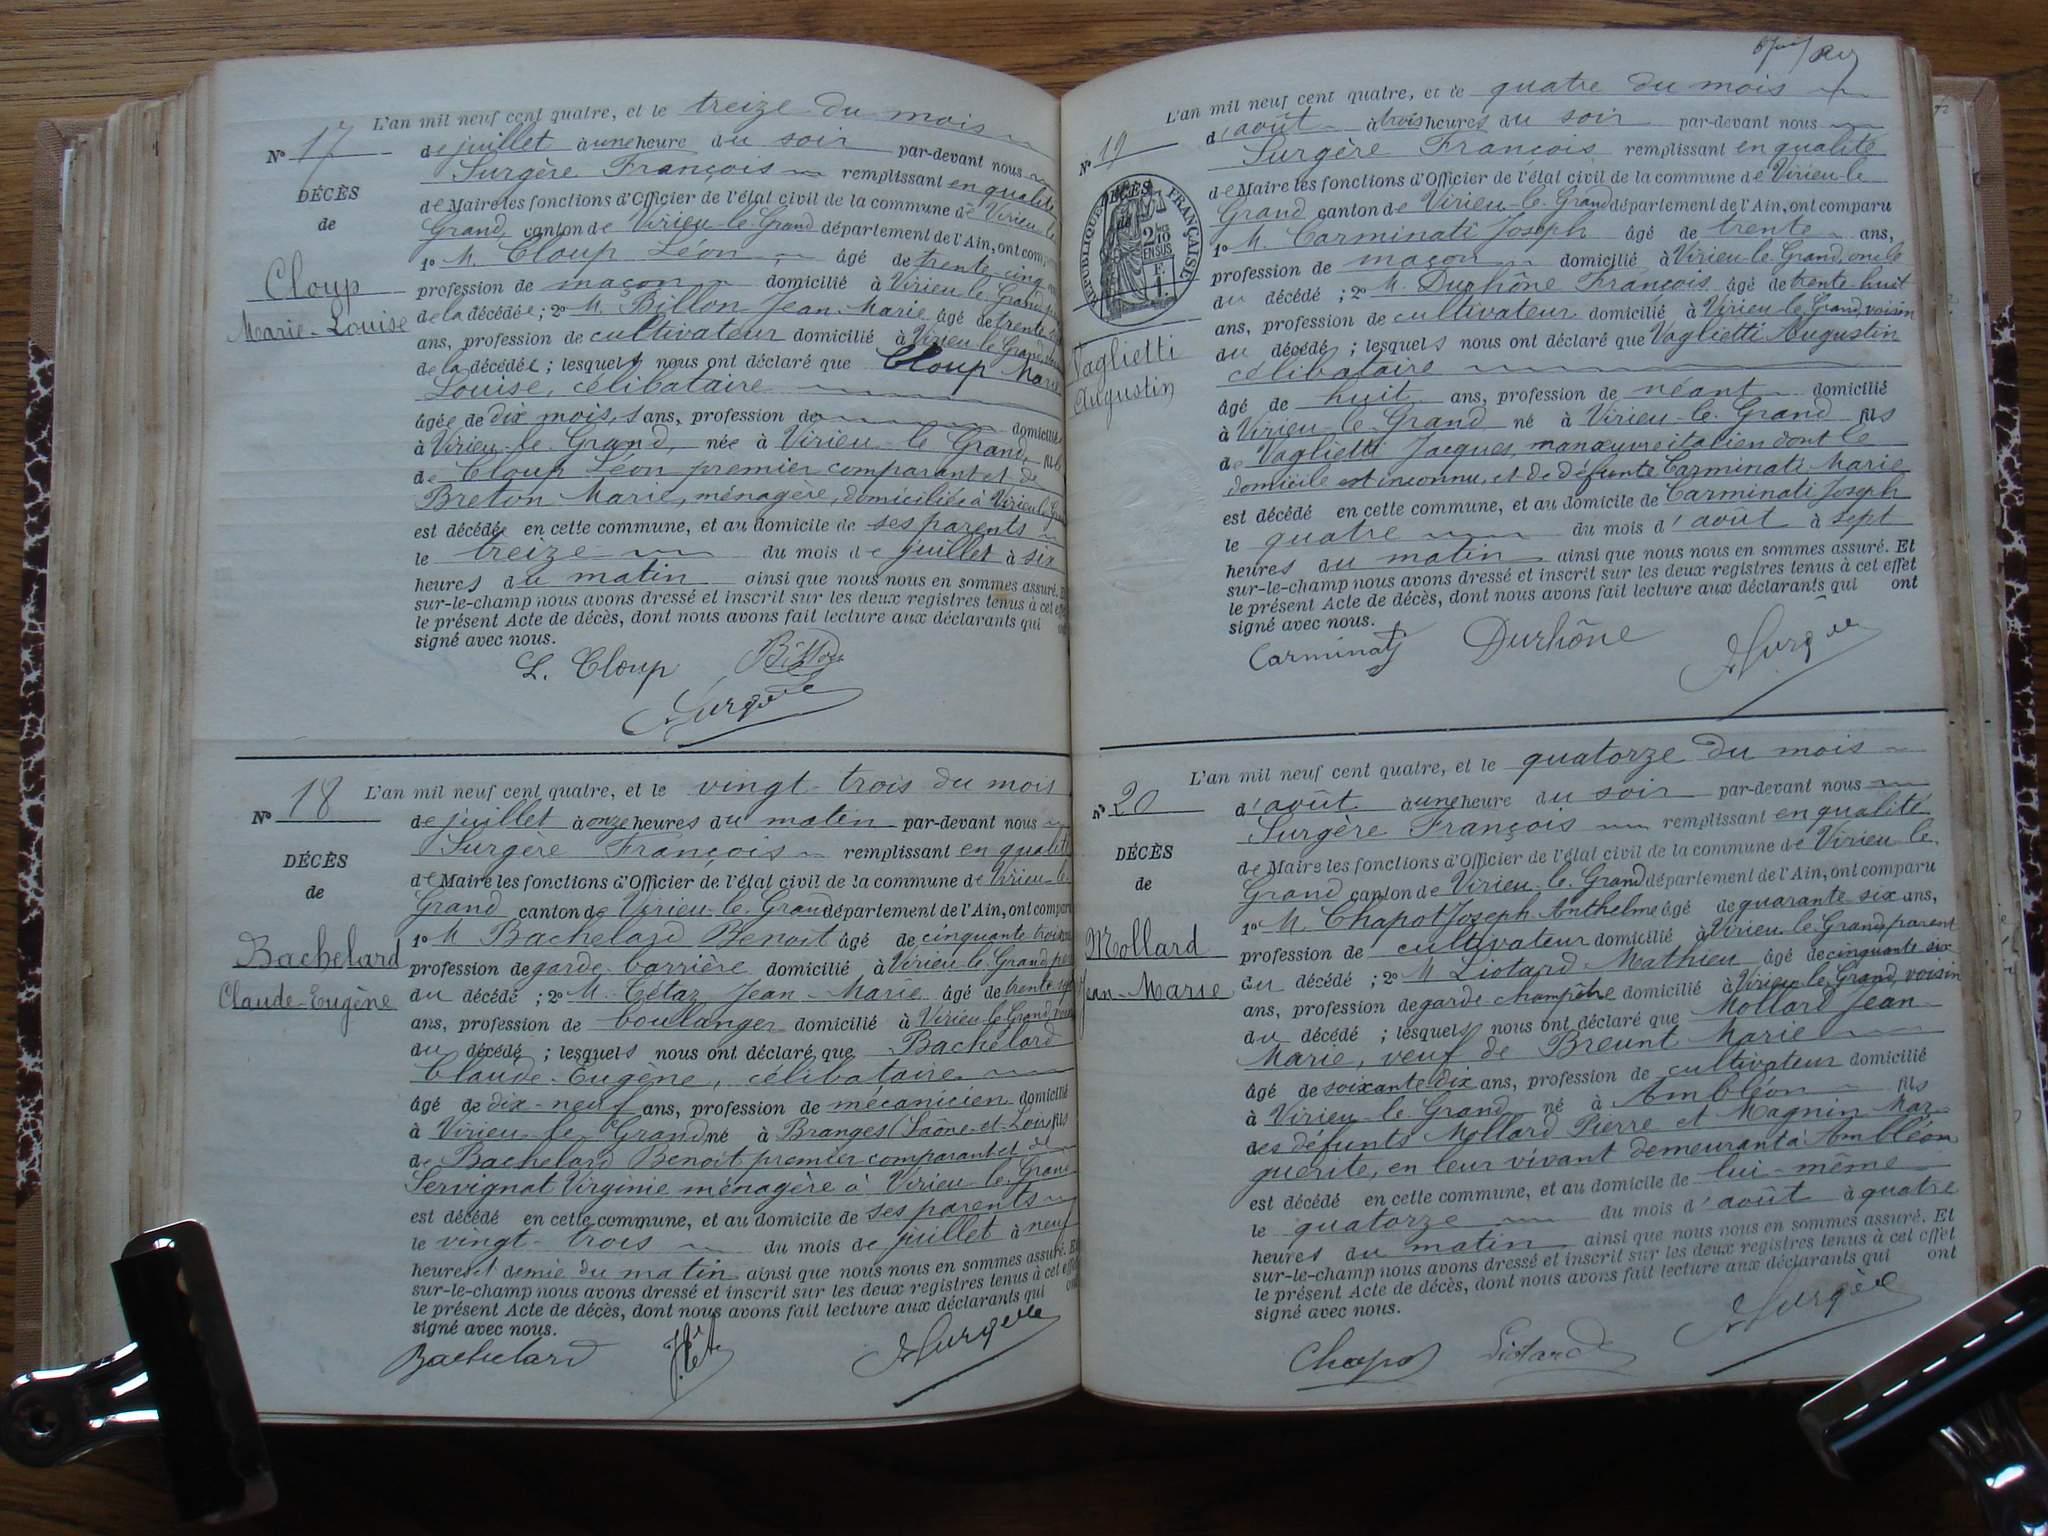 L'an mil neuf cent quatre, et le treize du mois
N° 17
de juillet à une heure du soir par-devant nous
Surgère François remplissant en qualité
DÉCÈS
de Maire les fonctions d'Officier de l'état civil de la commune de Virieu-le
de
Grand, canton de Virieu-le-Grand département de l'Ain, ont comp
1° M. Cloup Léon âgé de trente-cinq
Cloup
profession de maçon domicilié à Virieu-le-Grand
Marie-Louise
de la décédée ; 2° M. Billon Jean-Marie âgé de trente
ans, profession de cultivateur domicilié à Virieu-le-Grand
de la décédée ; lesquels nous ont déclaré que Cloup Marie
Louise, célibataire
âgée de dix mois, ans, profession de domiciliée
à Virieu-le-Grand, née à Virieu-le-Grand, fille
de Cloup Léon premier comparant et de
Breton Marie, ménagère, domiciliée à Virieu le Grand
est décédée en cette commune, et au domicile de ses parents
le treize du mois de juillet à six
heures du matin ainsi que nous nous en sommes assuré. Et
sur-le-champ nous avons dressé et inscrit sur les deux registres tenus à cet effet
le présent Acte de décès, dont nous avons fait lecture aux déclarants qui
signé avec nous.
L. Cloup Billon
Surgère
L'an mil neuf cent quatre, et le vingt-trois du mois
N° 18
de juillet à onze heures du matin par-devant nous
Surgère François remplissant en qualité
DÉCÈS
de Maire les fonctions d'Officier de l'état civil de la commune de Virieu-le
de
Grand canton de Virieu-le-Grand département de l'Ain, ont comparu
1° M Bachelard Benoit âgé de cinquante trois ans
Bachelard
profession de garde-barrière domicilié à Virieu-le-Grand, père
Claude-Eugène
du décédé ; 2° M. Cétaz Jean-Marie âgé de trente-sept
ans, profession de boulanger domicilié à Virieu le Grand
du décédé ; lesquels nous ont déclaré que Bachelard
Claude-Eugène, célibataire
âgé de dix-neuf ans, profession de mécanicien domicilié
à Virieu-le-Grand né à Branges (Saône-et-Loire) fils
de Bachelard Benoit premier comparant et de
Servignat Virginie ménagère à Virieu-le-Grand
est décédé en cette commune, et au domicile de ses parents
le vingt-trois du mois de juillet à neuf
heures et demie du matin ainsi que nous nous en sommes assuré. Et
sur-le-champ nous avons dressé et inscrit sur les deux registres tenus à cet effet
le présent Acte de décès, dont nous avons fait lecture aux déclarants qui
signé avec nous.
Bachelard Surgère
L'an mil neuf cent quatre, et le quatre du mois
N° 19
d'août à trois heures du soir par-devant nous
Surgère François remplissant en qualité
DÉCÈS
de
RÉPUBLIQUE FRANÇAISE
2/10 EN SUS
de Maire les fonctions d'Officier de l'état civil de la commune de Virieu-le
Grand canton de Virieu-le-Grand département de l'Ain, ont comparu
1° M. Carminati Joseph âgé de trente ans,
profession de maçon domicilié à Virieu-le-Grand, oncle
du décédé ; 2° M. Durhône François âgé de trente-huit
ans, profession de cultivateur domicilié à Virieu-le-Grand, voisin
Vaglietti
Augustin
du décédé ; lesquels nous ont déclaré que Vaglietti Augustin
célibataire
âgé de huit ans, profession de néant domicilié
à Virieu-le-Grand né à Virieu-le-Grand fils
de Vaglietti Jacques, manœuvre italien dont le
domicile est inconnu, et de défunte Carminati Marie
est décédé en cette commune, et au domicile de Carminati Joseph
le quatre du mois d'août à sept
heures du matin ainsi que nous nous en sommes assuré. Et
sur-le-champ nous avons dressé et inscrit sur les deux registres tenus à cet effet
le présent Acte de décès, dont nous avons fait lecture aux déclarants qui ont
signé avec nous.
Carminati Durhône Surgère
L'an mil neuf cent quatre, et le quatorze du mois
N° 20
d'août à une heure du soir par-devant nous
Surgère François remplissant en qualité
DÉCÈS
de Maire les fonctions d'Officier de l'état civil de la commune de Virieu-le-
de
Grand canton de Virieu-le-Grand département de l'Ain, ont comparu
1° M. Chapot Joseph Anthelme âgé de quarante six ans,
Mollard
profession de cultivateur domicilié à Virieu-le-Grand, parent
Jean-Marie
du décédé ; 2° M Liotard Mathieu âgé de cinquante six
ans, profession de garde champêtre domicilié à Virieu-le-Grand, voisin
du décédé ; lesquels nous ont déclaré que Mollard Jean
Marie, veuf de Breunt Marie
âgé de soixante dix ans, profession de cultivateur domicilié
à Virieu-le-Grand né à Ambléon fils
des défunts Mollard Pierre et Magnin Mar-
guerite, en leur vivant demeurant à Ambléon
est décédé en cette commune, et au domicile de lui-même
le quatorze du mois d'août à quatre
heures du matin ainsi que nous nous en sommes assuré. Et
sur-le-champ nous avons dressé et inscrit sur les deux registres tenus à cet effet
le présent Acte de décès, dont nous avons fait lecture aux déclarants qui ont
signé avec nous.
Chapot Liotard Surgère